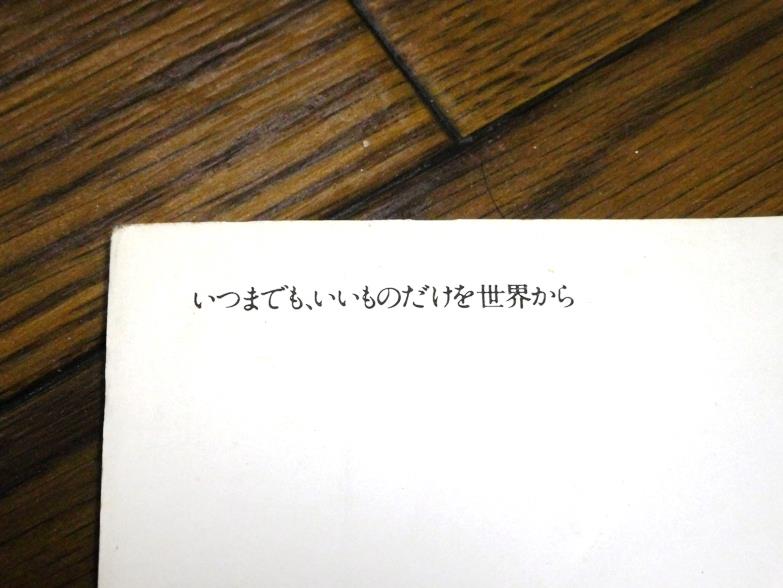 いつまでも、いいものだけを世界から